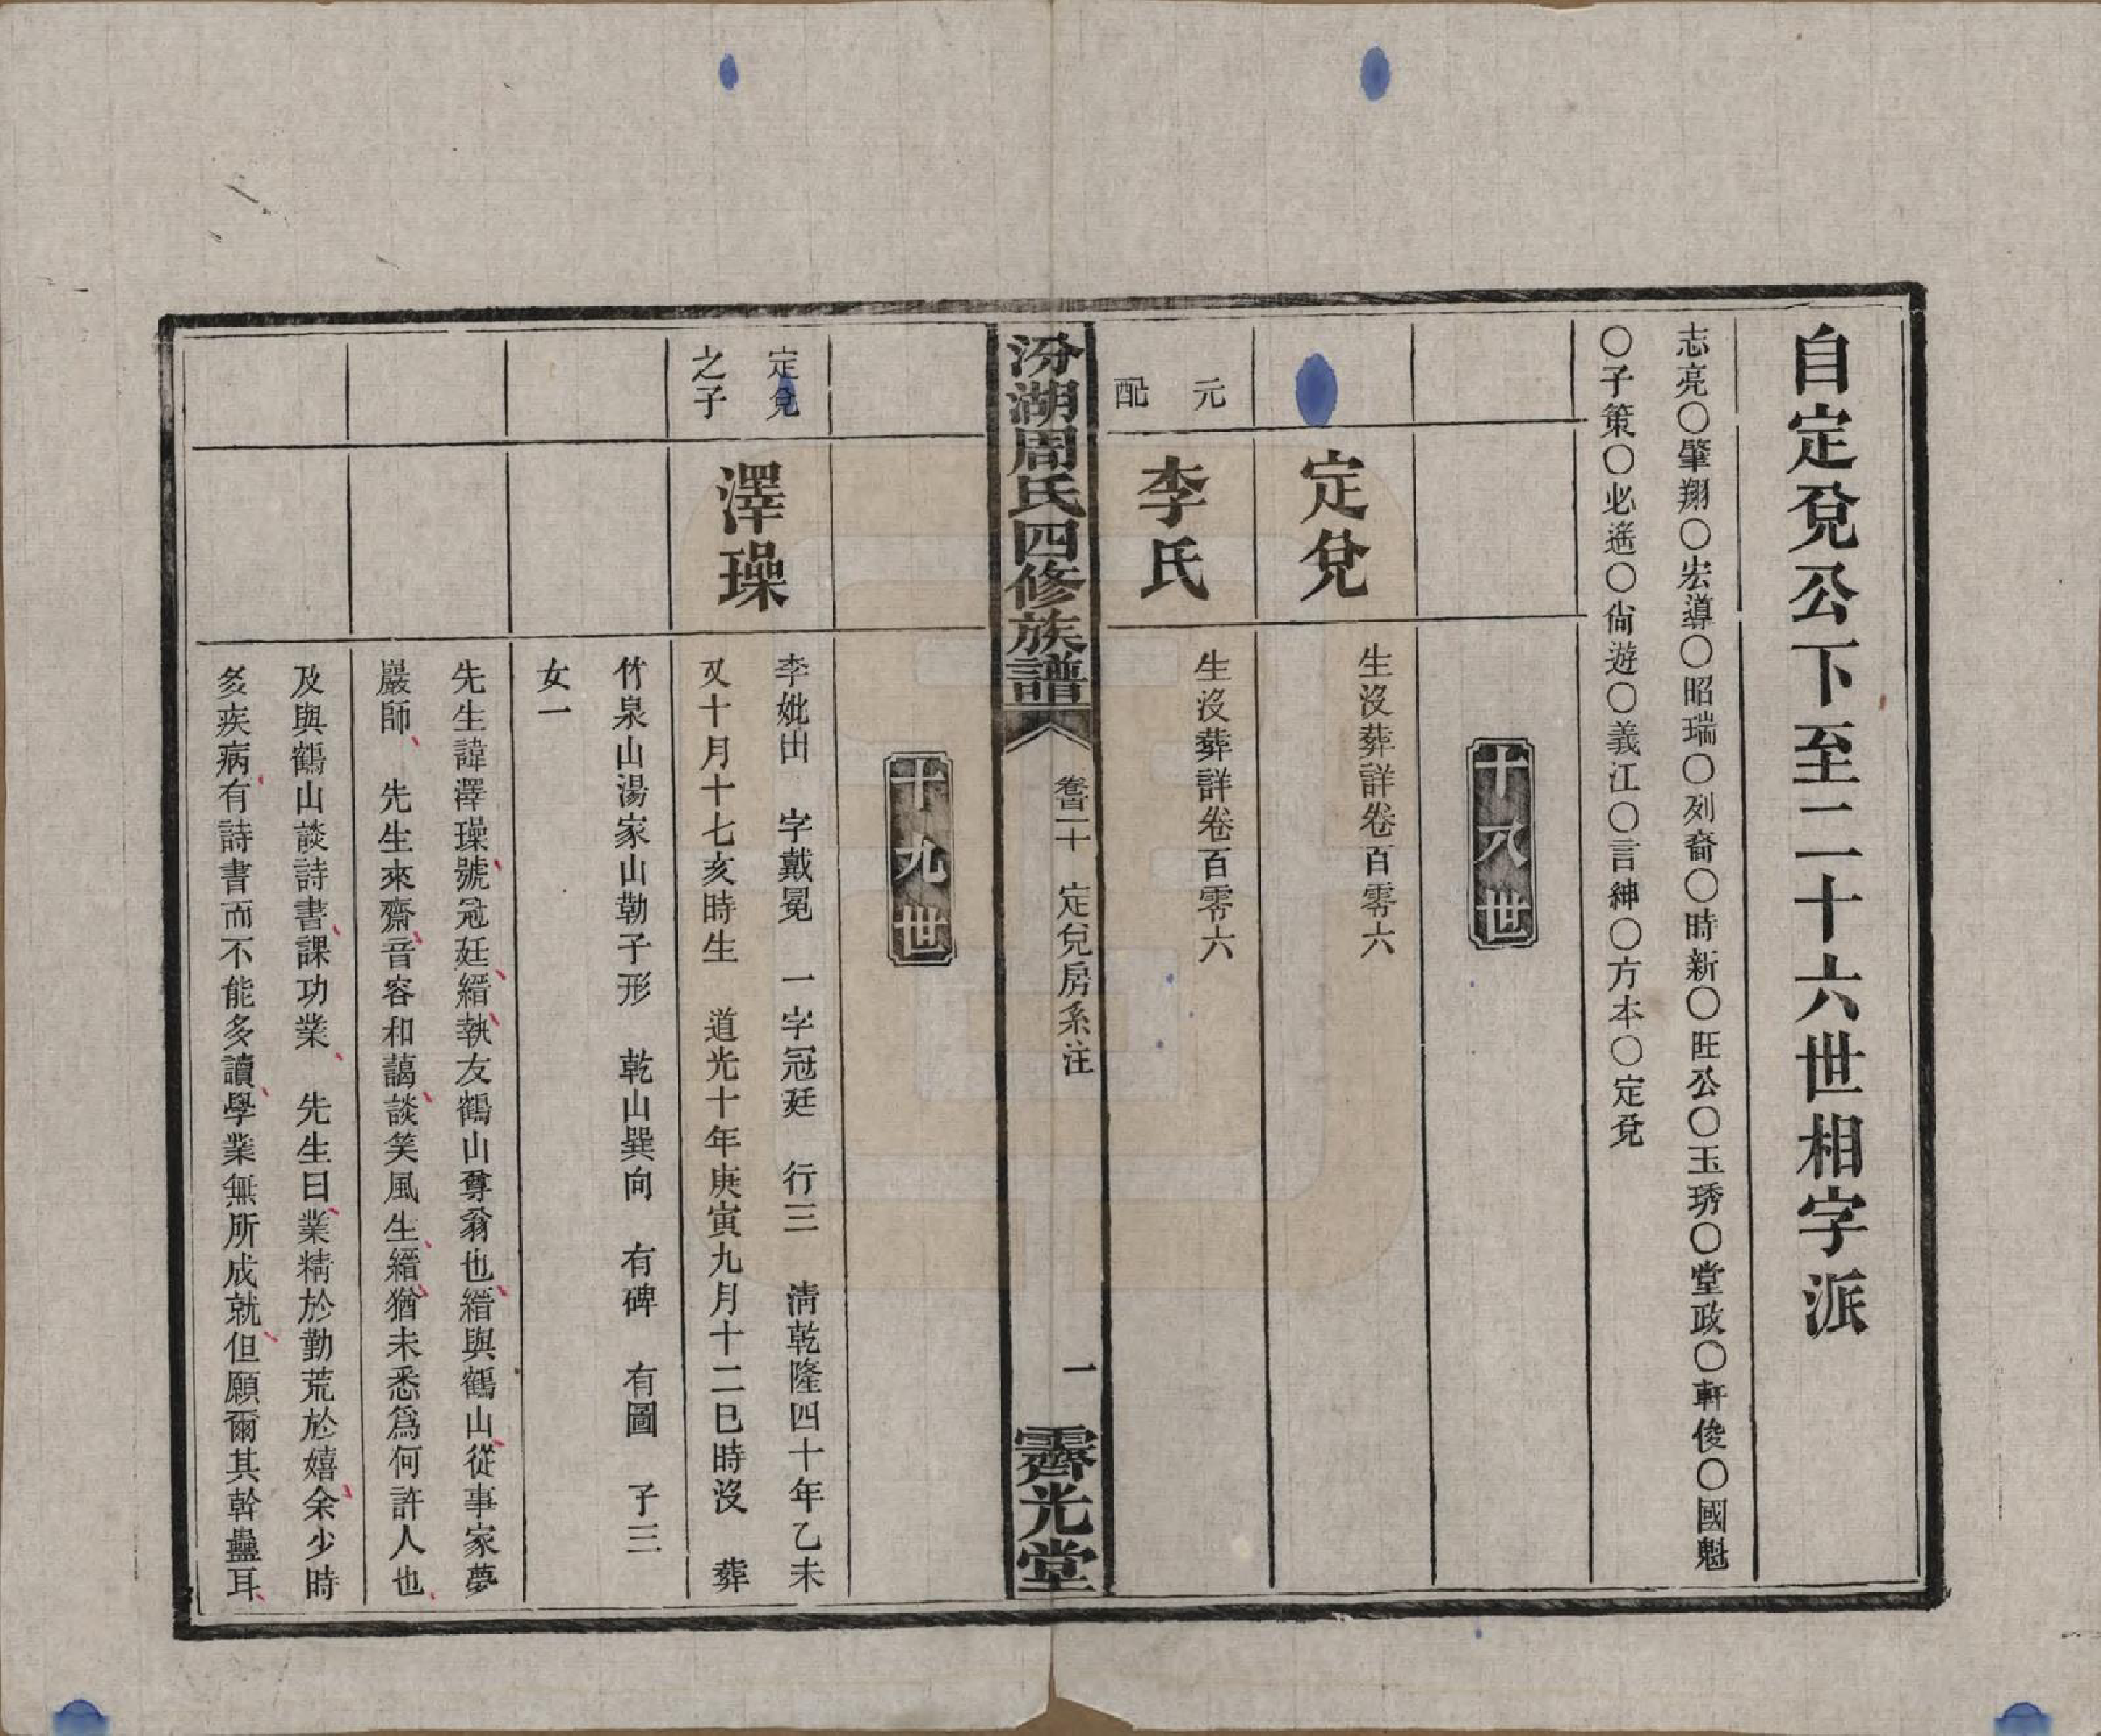 自定兌公下至二十六世相字派
志亮〇肇翔〇宏導〇昭瑞〇列裔〇時新〇旺公〇玉琇〇堂政〇軒俊〇國魁
〇子策〇必遙〇尙遊〇義江〇言紳〇方本〇定兌
十八世
定兌
生沒葬詳卷百零六
元配
李氏
生沒葬詳卷百零六
汾湖周氏四修族譜
卷百二十 定兌房系注
一
霽光堂
十九世
定兌
之子
澤璪
李妣出 字戴冕 一字冠廷 行三 淸乾隆四十年乙未
又十月十七亥時生 道光十年庚寅九月十二巳時沒 葬
竹泉山湯家山勒子形 乾山巽向 有碑 有圖 子三
女一
先生諱澤璪號冠廷縉執友鶴山尊翁也縉與鶴山從事家夢
巖師 先生來齋音容和藹談笑風生縉猶未悉爲何許人也
及與鶴山談詩書課功業 先生曰業精於勤荒於嬉余少時
多疾病有詩書而不能多讀學業無所成就但願爾其幹蠱耳